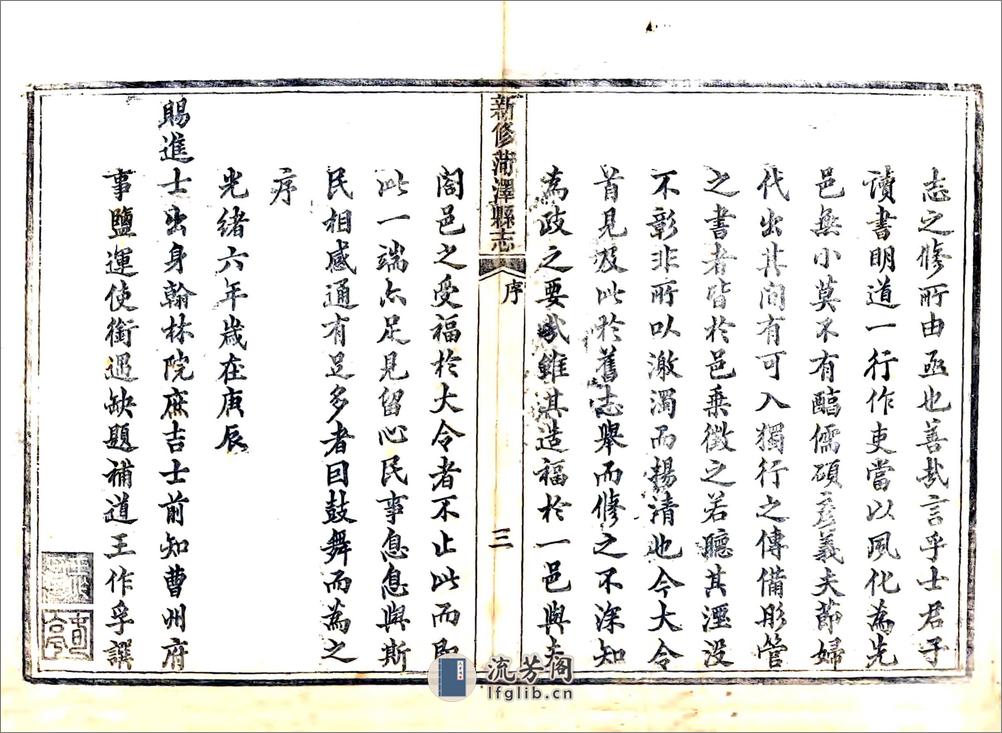 志之修所由亟也善哉言乎士君子
讀書明道一行作吏當以風化為先
邑無小莫不有醕儒碩彥義夫節婦
代出其間有可入獨行之傳備彤管
之書者皆於邑乘徵之若聽其湮沒
不彰非所以激濁而揚清也今大令
首見及此於舊志舉而修之不深知
為政之要哉雖淇造福於一邑與夫
新修菏澤縣志
序
三
闔邑之受福於大令者不止此而即
此一端亦足見留心民事息息與斯
民相感通有足多者因鼓舞而為之
序
光緒六年歲在庚辰
賜進士出身翰林院庶吉士前知曹州府
事鹽運使銜遇缺題補道王作孚譔
流芳阁
lfglib.cn